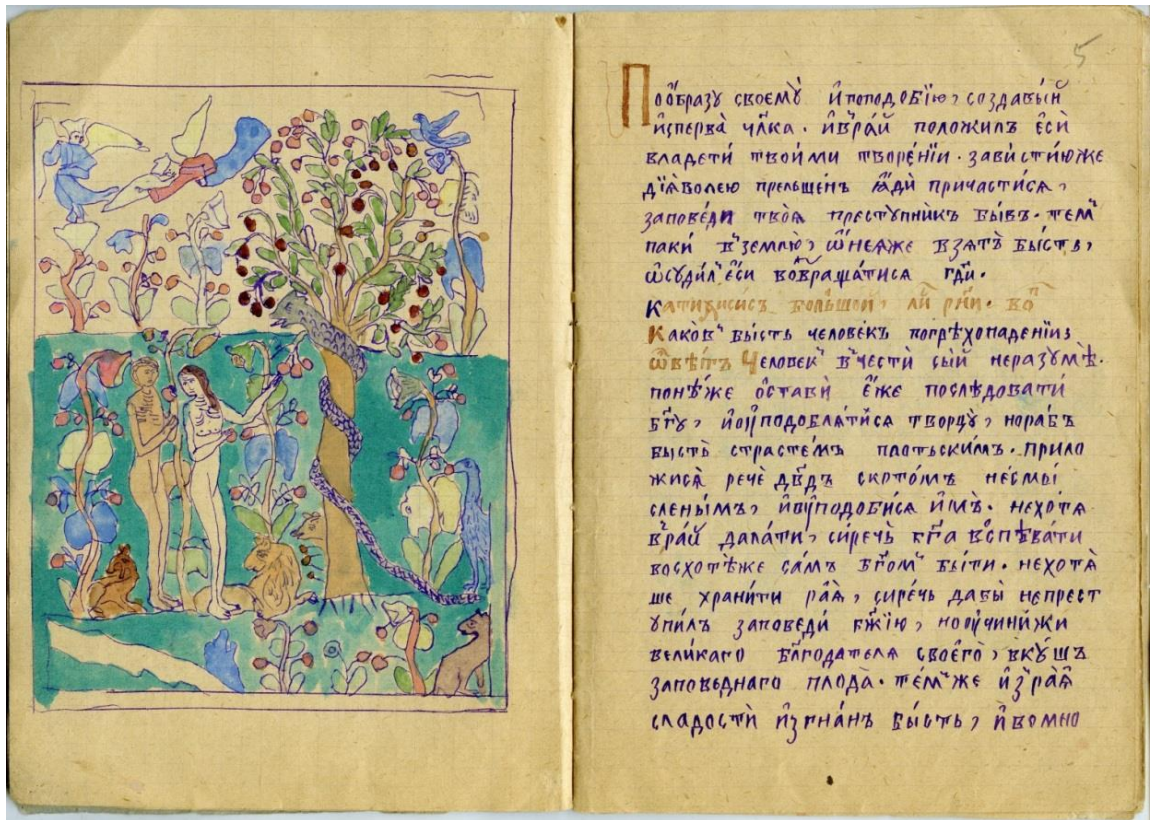 5
По о҆́бразу своему̀ и҆ поподо́бїю, созда́вый
и҆спе́рва чл҃ка. и҆в ра́й положи́лъ є҆сѝ
владе́ти твои́ми творе́нїи. за́вистию же
дїа́волею прельще́нъ ꙗ҆́ди причасти́ся,
за́поведи твоя̀ престу́пникъ бы́въ. тем
па́ки в зе́млю, ѿ нея́же взя́тъ бы́сть,
ѿсуди́л є҆сѝ во́вращатися гд҃и.
Катихисисъ большо́й, ли́ рн҃и. во
Како́в бы́сть челове́къ погрѣхопаде́нїиз
ѿвѣ́тъ Челове́к в че́сти сы́й неразумѣ̀.
понѣ́же о҆ста́ви є҆́же послѣ́довати
бг҃у, и҆ оу҆подобля́тися творцу̀, нора́бъ
бы́сть страсте́мъ пло́тьскимъ. прило
жися речѐ дв҃дъ ското́мъ несмы́
сленымъ, и҆ оу҆подо́бися и҆́мъ. нехотя̀
в ра́й дѧла́ти, си́речь бг҃а воспѣва́ти
восхотѣ́же са́мъ бг҃ом бы́ти. нехотя̀
ше храни́ти рая̀, си́речь дабы̀ непрест
упи́лъ за́поведи бж҃їю, ноо҆учини́жи
вели́каго бл҃года́теля своего̀, вку́шъ
за́поведнаго плода̀. те́м же и҆з рая̀
сла́дости и҆згна́нъ бы́сть, и҆ вомно